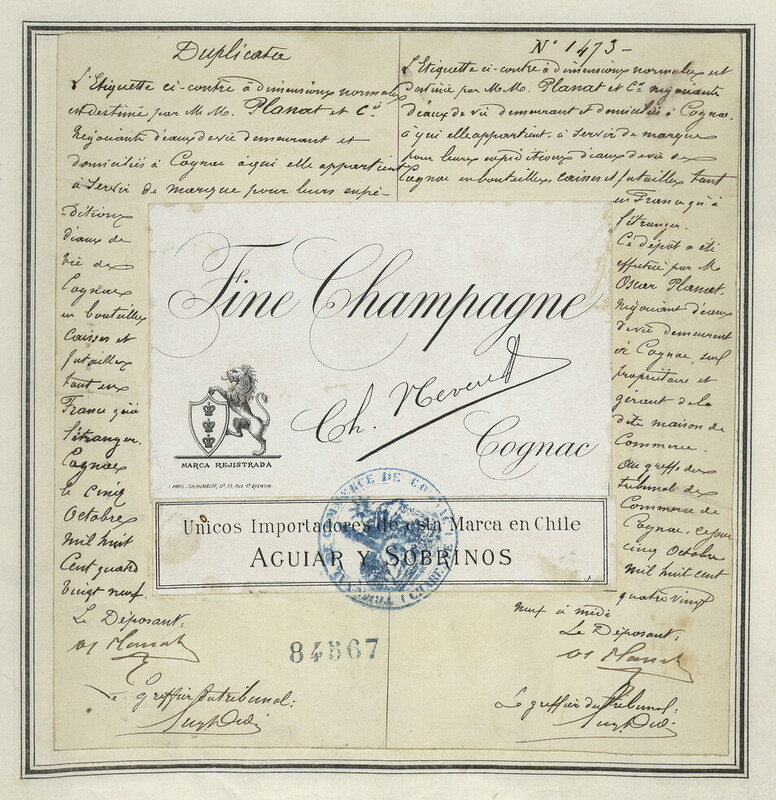 Duplicata
L'Etiquette ci-contre à dimensions normales
est destinée par M.M. Planat et Cie
Négociants d'eaux de vie demeurant et
domiciliés à Cognac à qui elle appartient
à servir de marque pour leurs expé-
ditions
d'eaux de
vie de
Cognac
en bouteilles
caisses et
futailles
tant en
France qu'à
l'étranger.
Cognac
le cinq
Octobre
mil huit
cent quatre
vingt neuf.
Le Déposant:
Os Planat
Le greffier du tribunal:
N° 1473 -
L'Etiquette ci-contre à dimensions normales est
destinée par M.M. Planat et Cie négociants
d'eaux de vie demeurant et domiciliés à Cognac.
à qui elle appartient, à servir de marque
pour leurs expéditions d'eaux de vie de
Cognac en bouteilles, caisses et futailles tant
en France qu'à
l'étranger.
Ce dépôt a été
effectué par M.
Oscar Planat.
négociant d'eaux
de vie demeurant
à Cognac, seul
propriétaire et
gérant de la
dite maison de
Commerce.
Au greffe du
tribunal de
Commerce de
Cognac, ce jour
cinq Octobre
mil huit cent
quatre vingt
neuf à midi
Le Déposant:
Os Planat
Le greffier du tribunal:
Fine Champagne
Ch.
Cognac
MARCA REJISTRADA
PARIS
Unicos Importadores de esta Marca en Chile
AGUIAR Y SOBRINOS
COMMERCE DE COGNAC
84567